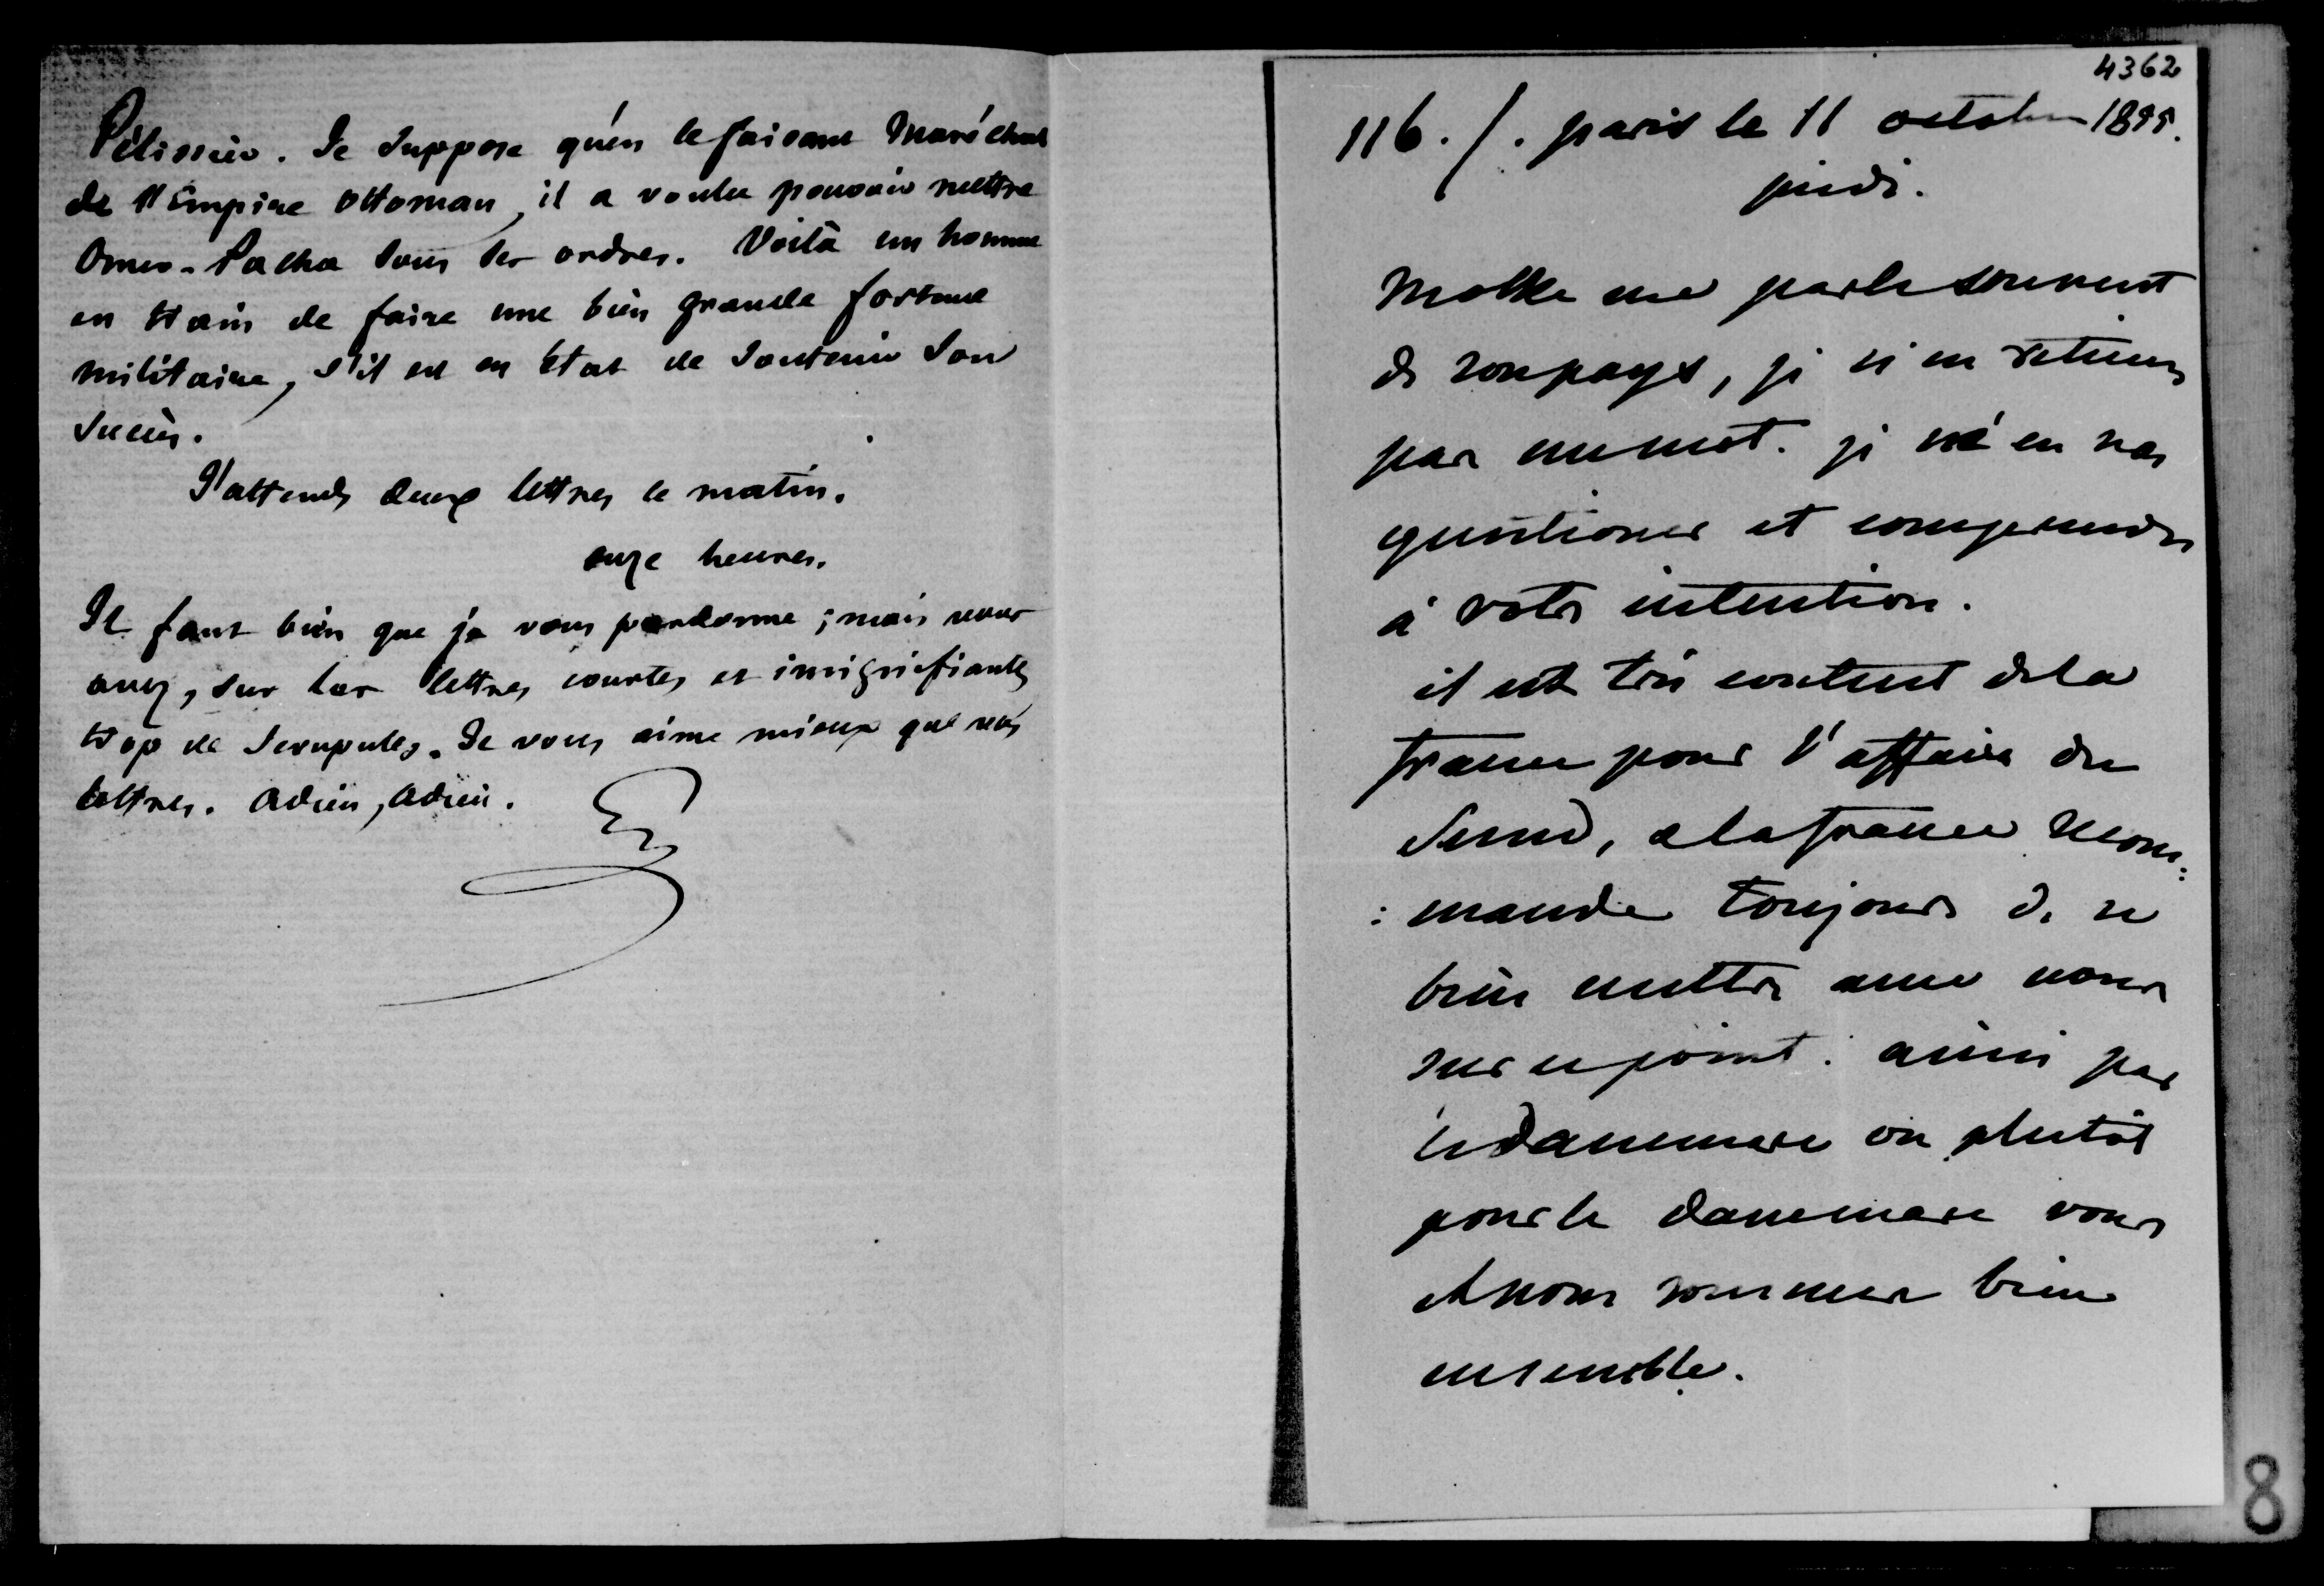 Pélissier. Je suppose qu'en le faisant Maréchal
de l'Empire Ottoman, il a voulu pouvoir mettre
Omer-Pacha sous ses ordres. Voilà un homme
en train de faire une bien grande fortune
militaire, s'il est en état de soutenir son
succès.
J'attends deux lettres le matin.
onze heures.
Il faut bien que je vous pardonne ; mais vous
avez, sur les lettres courtes et insignifiantes
trop de scrupules. Je vous aime mieux que vos
lettres. Adieu, adieu.
4362
116. /. paris le 11 octobre 1855.
jeudi.
Molke me parle souvent
de son pays, je n'en retiens
pas un mot. je vé en vas
questioner et comprendre
à votre intention.
il est très content de la
france pour l'affaire du
Sund, & la france recom:
:mande toujours de se
bien mettre avec nous
sur ce point. ainsi par
le dannemarc ou plutôt
pour le dannemarc vous
et nous sommes bien
ensemble.
8